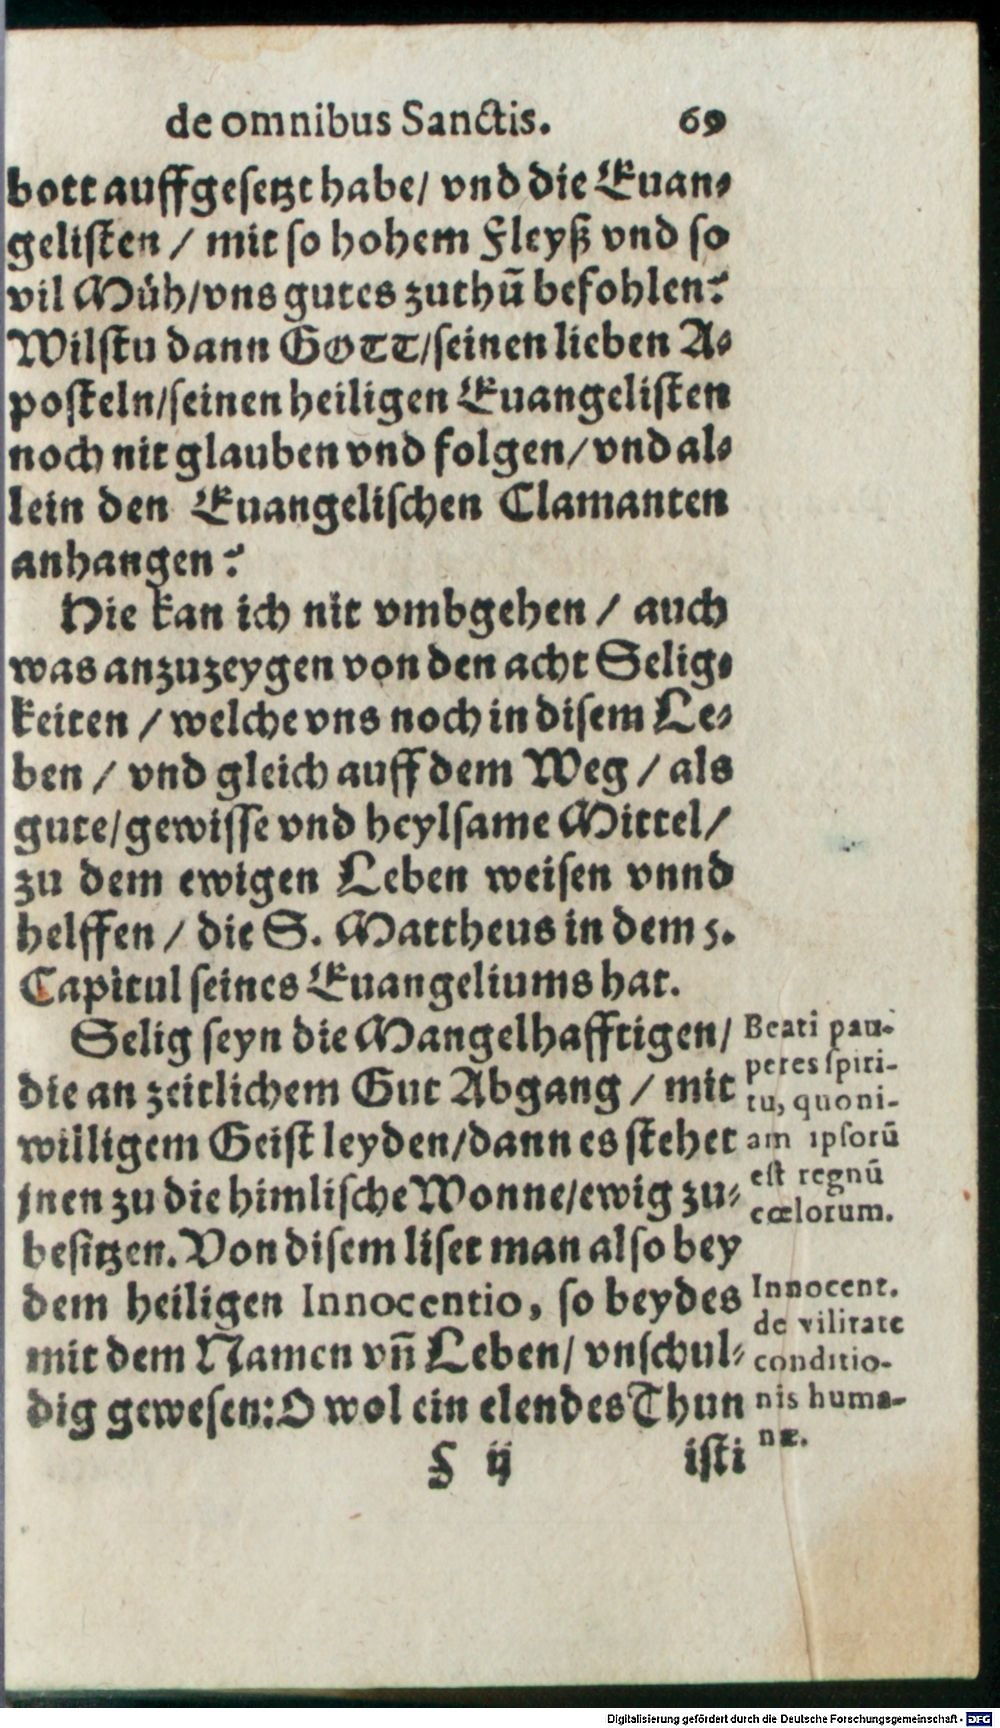 de omnibus Sanctis. 69
bott auffgesetzt habe/ vnd die Euan⸗
gelisten / mit so hohem Fleyß vnd so
vil Müh/vns gutes zuthũ befohlen?
Wilstu dann GOTT/seinen lieben A⸗
posteln/seinen heiligen Euangelisten
noch nit glauben vnd folgen/vnd al⸗
lein den Euangelischen Clamanten
anhangen?
Hie kan ich nit vmbgehen / auch
was anzuzeygen von den acht Selig⸗
keiten / welche vns noch in disem Le⸗
ben / vnd gleich auff dem Weg / als
gute/gewisse vnd heylsame Mittel/
zu dem ewigen Leben weisen vnnd
helffen / die S. Mattheus in dem 5.
Capitul seines Euangeliums hat.
Selig seyn die Mangelhafftigen/
die an zeitlichem Gut Abgang / mit
willigem Geist leyden/dann es stehet
jnen zu die himlische Wonne/ewig zu⸗
besitzen. Von disem liset man also bey
dem heiligen Innocentio, so beydes
mit dem Namen vñ Leben/ vnschul⸗
dig gewesen: O wol ein elendes Thun
F ij isti
Beati pau-
peres spiri-
tu, quoni-
am ipsorũ
est regnũ
cœlorum.
Innocent.
de vilitate
conditio-
nis huma-
næ.
Digitalisierung gefördert durch die Deutsche Forschungsgemeinschaft - DFG